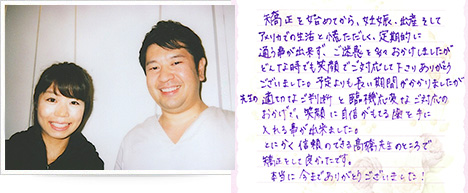 矯正を始めてから、妊娠、出産そして
アメリカでの生活と慌ただしく、定期的に
通う事が出来ず、ご迷惑を多々おかけしましたが
どんな時でも笑顔でご対応して下さりありがとう
ございました。予定よりも長い期間がかかりましたが
先生の適切なご判断と臨機応変なご対応の
おかげで、笑顔に自信がもてる歯を手に
入れる事が出来ました。
とにかく信頼のできる髙橋先生のところで
矯正をして良かったです。
本当に今までありがとうございました！